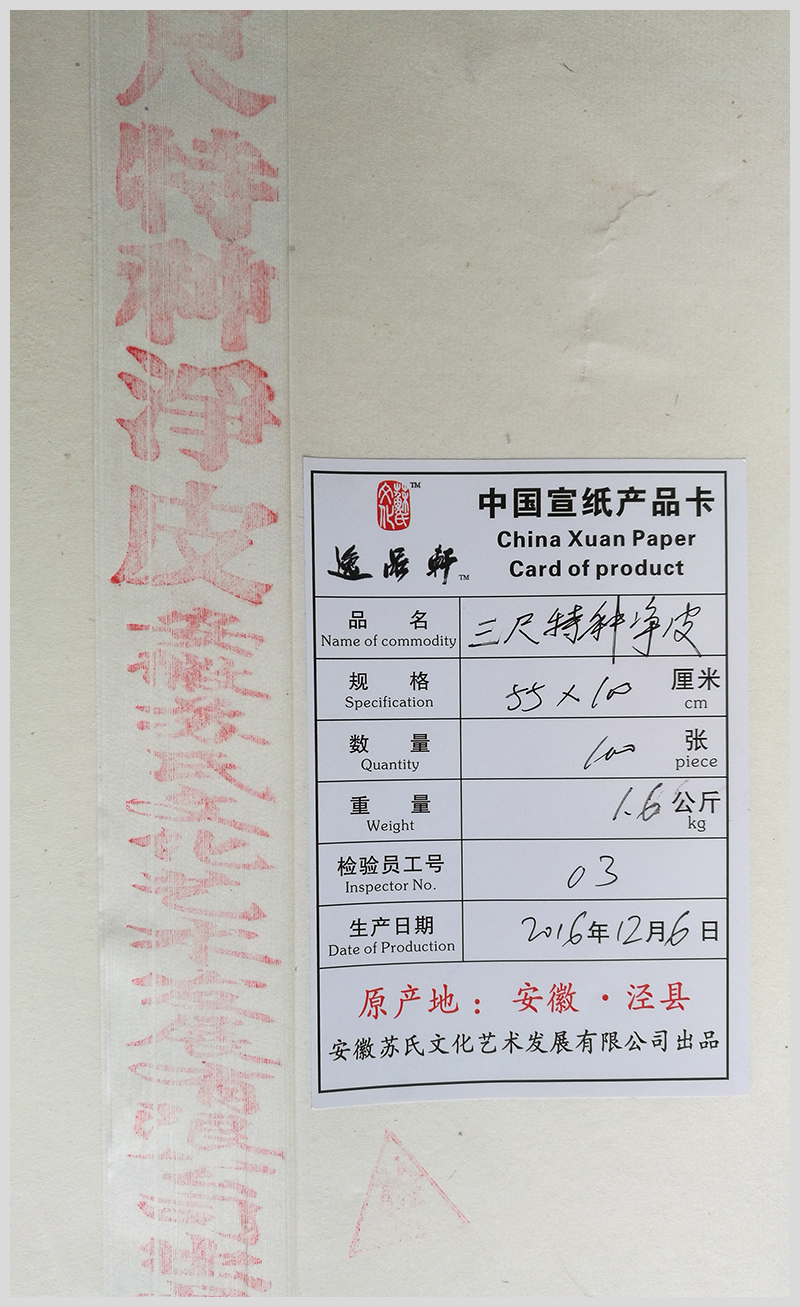 尺特种淨皮
安徽苏氏文化艺术发展有限公司
文化
蘇氏
TM
逸品軒
TM
中国宣纸产品卡
China Xuan Paper
Card of product
品 名
Name of commodity
三尺特种净皮
规 格
Specification
55×100
厘米
cm
数 量
Quantity
100
张
piece
重 量
Weight
1.6
公斤
kg
检验员工号
Inspector No.
03
生产日期
Date of Production
2016年12月6日
原产地：安徽·泾县
安徽苏氏文化艺术发展有限公司出品